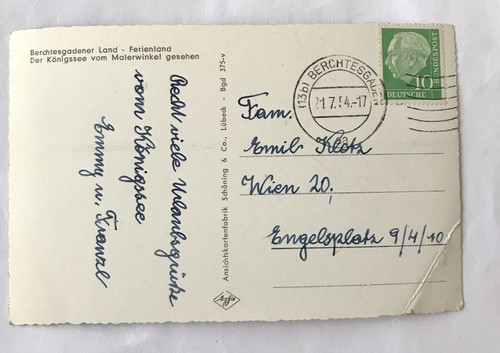 Berchtesgadener Land - Ferienland
Der Königssee vom Malerwinkel gesehen
Recht viele Urlaubsgrüße
vom Königssee
Emmy u. Franzl
Ansichtskartenfabrik Schöning & Co., Lübeck - Bgd 375-v
Agfa
(13b) BERCHTESGADEN
21.7.54.-17
10
DEUTSCHE
BUNDESPOST
Fam.
Emil Klotz
Wien 20,
Engelsplatz 9/4/10